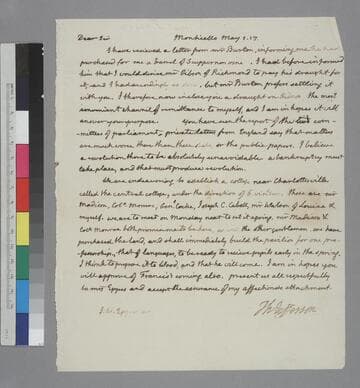 Dear Sir Monticello May 1. 17.
I have recieved a letter from mr Burton, informing me he had
purchased for me a barrel of Scuppernon wine. I had before informed
him that I would desire mr Gibson of Richmond to pay his draught for
it, and I had accordingly so done, but mr Burton prefers settling it
with you. I therefore now inclose you a draught on Gibson the most
convenient channel of remittance to myself, and I am in hopes it will
answer your purpose. You have seen the report of the two com-
mittees of parliament. private letters from England say that matters
are much worse there than these or the public papers. I believe
a revolution there to be absolutely unavoidable. a bankruptcy must
take place, and that must produce revolution.
We are endeavoring to establish a college near Charlottesville
called the Central college, under the direction of 6 visitors. These are mr
Madison, Colo. Monroe, Genl. Cocke, Joseph C. Cabell, mr Watson of Louisa &
myself. we are to meet on Monday next to set it agoing. mr Madison &
Colo Monroe both promise to be here, as will the other gentlemen. we have
purchased the land, and shall immediately build the pavilion for one pro-
fessorship, that of languages, to be ready to recieve pupils early in the spring.
I think to propose it to and that he will come. I am in hopes you
will approve of Francis's coming also. present us all respectfully
to mrs Eppes and accept the assurance of my affectionate attachment.
Th: Jefferson
J. W. Eppes